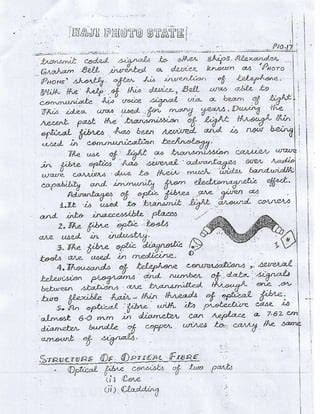 HAJI PHOTO STATE
P10-17
transmit coded signals to other ships. Alexander
Graham Bell invented a device known as "PHOTO
PHONE" shortly after his invention of telephone.
With the help of this device, Bell was able to
communicate his voice signal via a beam of light.
This idea was used for many years. During the
recent past the transmission of light through thin
optical fibres has been revived and is now being
used in communication technology.
The use of light as transmission carrier wave
in fibre optics has several advantages over radio
wave carriers due to their much wider bandwidth
capability and immunity from electromagnetic effect.
Advantages of optic fibres are given as
1. It is used to transmit light around corners
and into inaccessible places
2. The fibre optic tools
are used in industry.
3. The fibre optic diagnostic
tools are used in medicine.
4. Thousands of telephone conversations, several
television programs and number of data signals
between stations are transmitted through one or
two flexible hair-thin threads of optical fibre.
5. An optical fibre with its protective case is
almost 6.0 mm in diameter can replace a 7.62 cm
diameter bundle of copper wires to carry the same
amount of signals.
STRUCTURE OF OPTICAL FIBRE
Optical fibre consists of two parts
(i) Core
(ii) Cladding